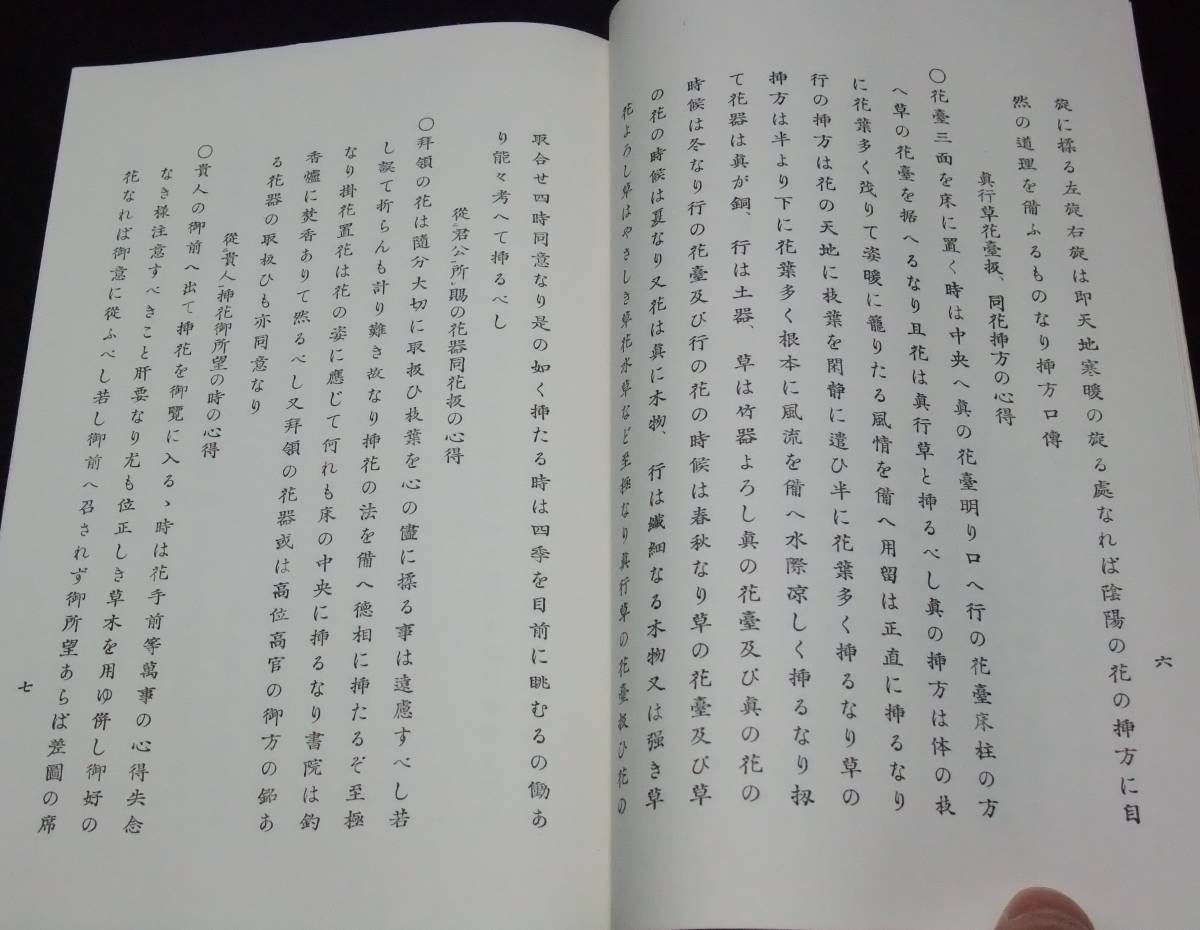 旋に揉る左旋右旋は卽天地寒暖の旋る處なれば陰陽の花の挿方に自
然の道理を備ふるものなり挿方口傳
眞行草花臺扱、同花挿方の心得
〇花臺三面を床に置く時は中央へ眞の花臺明り口へ行の花臺床柱の方
へ草の花臺を据へるなり且花は眞行草と挿るべし眞の挿方は体の枝
に花葉多く茂りて姿暖に籠りたる風情を備へ用留は正直に挿るなり
行の挿方は花の天地に枝葉を閑靜に遣ひ半に花葉多く挿るなり草の
挿方は半より下に花葉多く根本に風流を備へ水際凉しく挿るなり扨
て花器は眞が銅、行は土器、草は竹器よろし眞の花臺及び眞の花の
時候は冬なり行の花臺及び行の花の時候は春秋なり草の花臺及び草
の花の時候は夏なり又花は眞に木物、行は纎細なる木物又は强き草
花よろし草はやさしき草花水草など至極なり眞行草の花臺扱ひ花の
六
取合せ四時同意なり是の如く挿たる時は四季を目前に眺むるの働あ
り能々考へて挿るべし
從二君公一所レ賜の花器同花扱の心得
〇拜領の花は隨分大切に取扱ひ枝葉を心の儘に揉る事は遠慮すべし若
し誤て折らんも計り難き故なり挿花の法を備へ德相に挿たるぞ至極
なり掛花置花は花の姿に應じて何れも床の中央に挿るなり書院は釣
香爐に焚香ありて然るべし又拜領の花器或は高位高官の御方の銘あ
る花器の取扱ひも亦同意なり
從二貴人一挿花御所望の時の心得
〇貴人の御前へ出て挿花を御覽に入るゝ時は花手前等萬事の心得失念
なき樣注意すべきこと肝要なり尤も位正しき草木を用ゆ併し御好の
花なれば御意に從ふべし若し御前へ召されず御所望あらば差圖の席
七